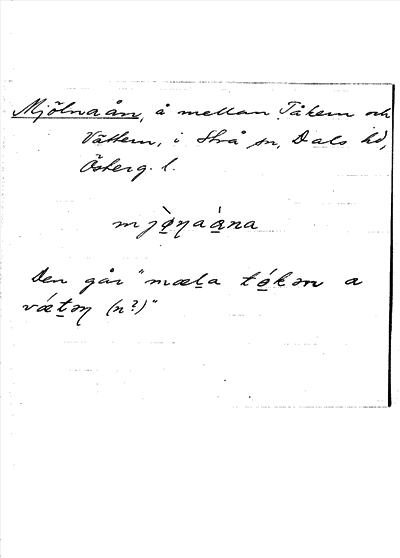 Mjölnaån, å mellan Tåkern och
Vättern, i Strå sn, Dals hd,
Österg. l.
mjö̀ŋaàna
Den går "mæla tókən a
vǽtəŋ (n?)"